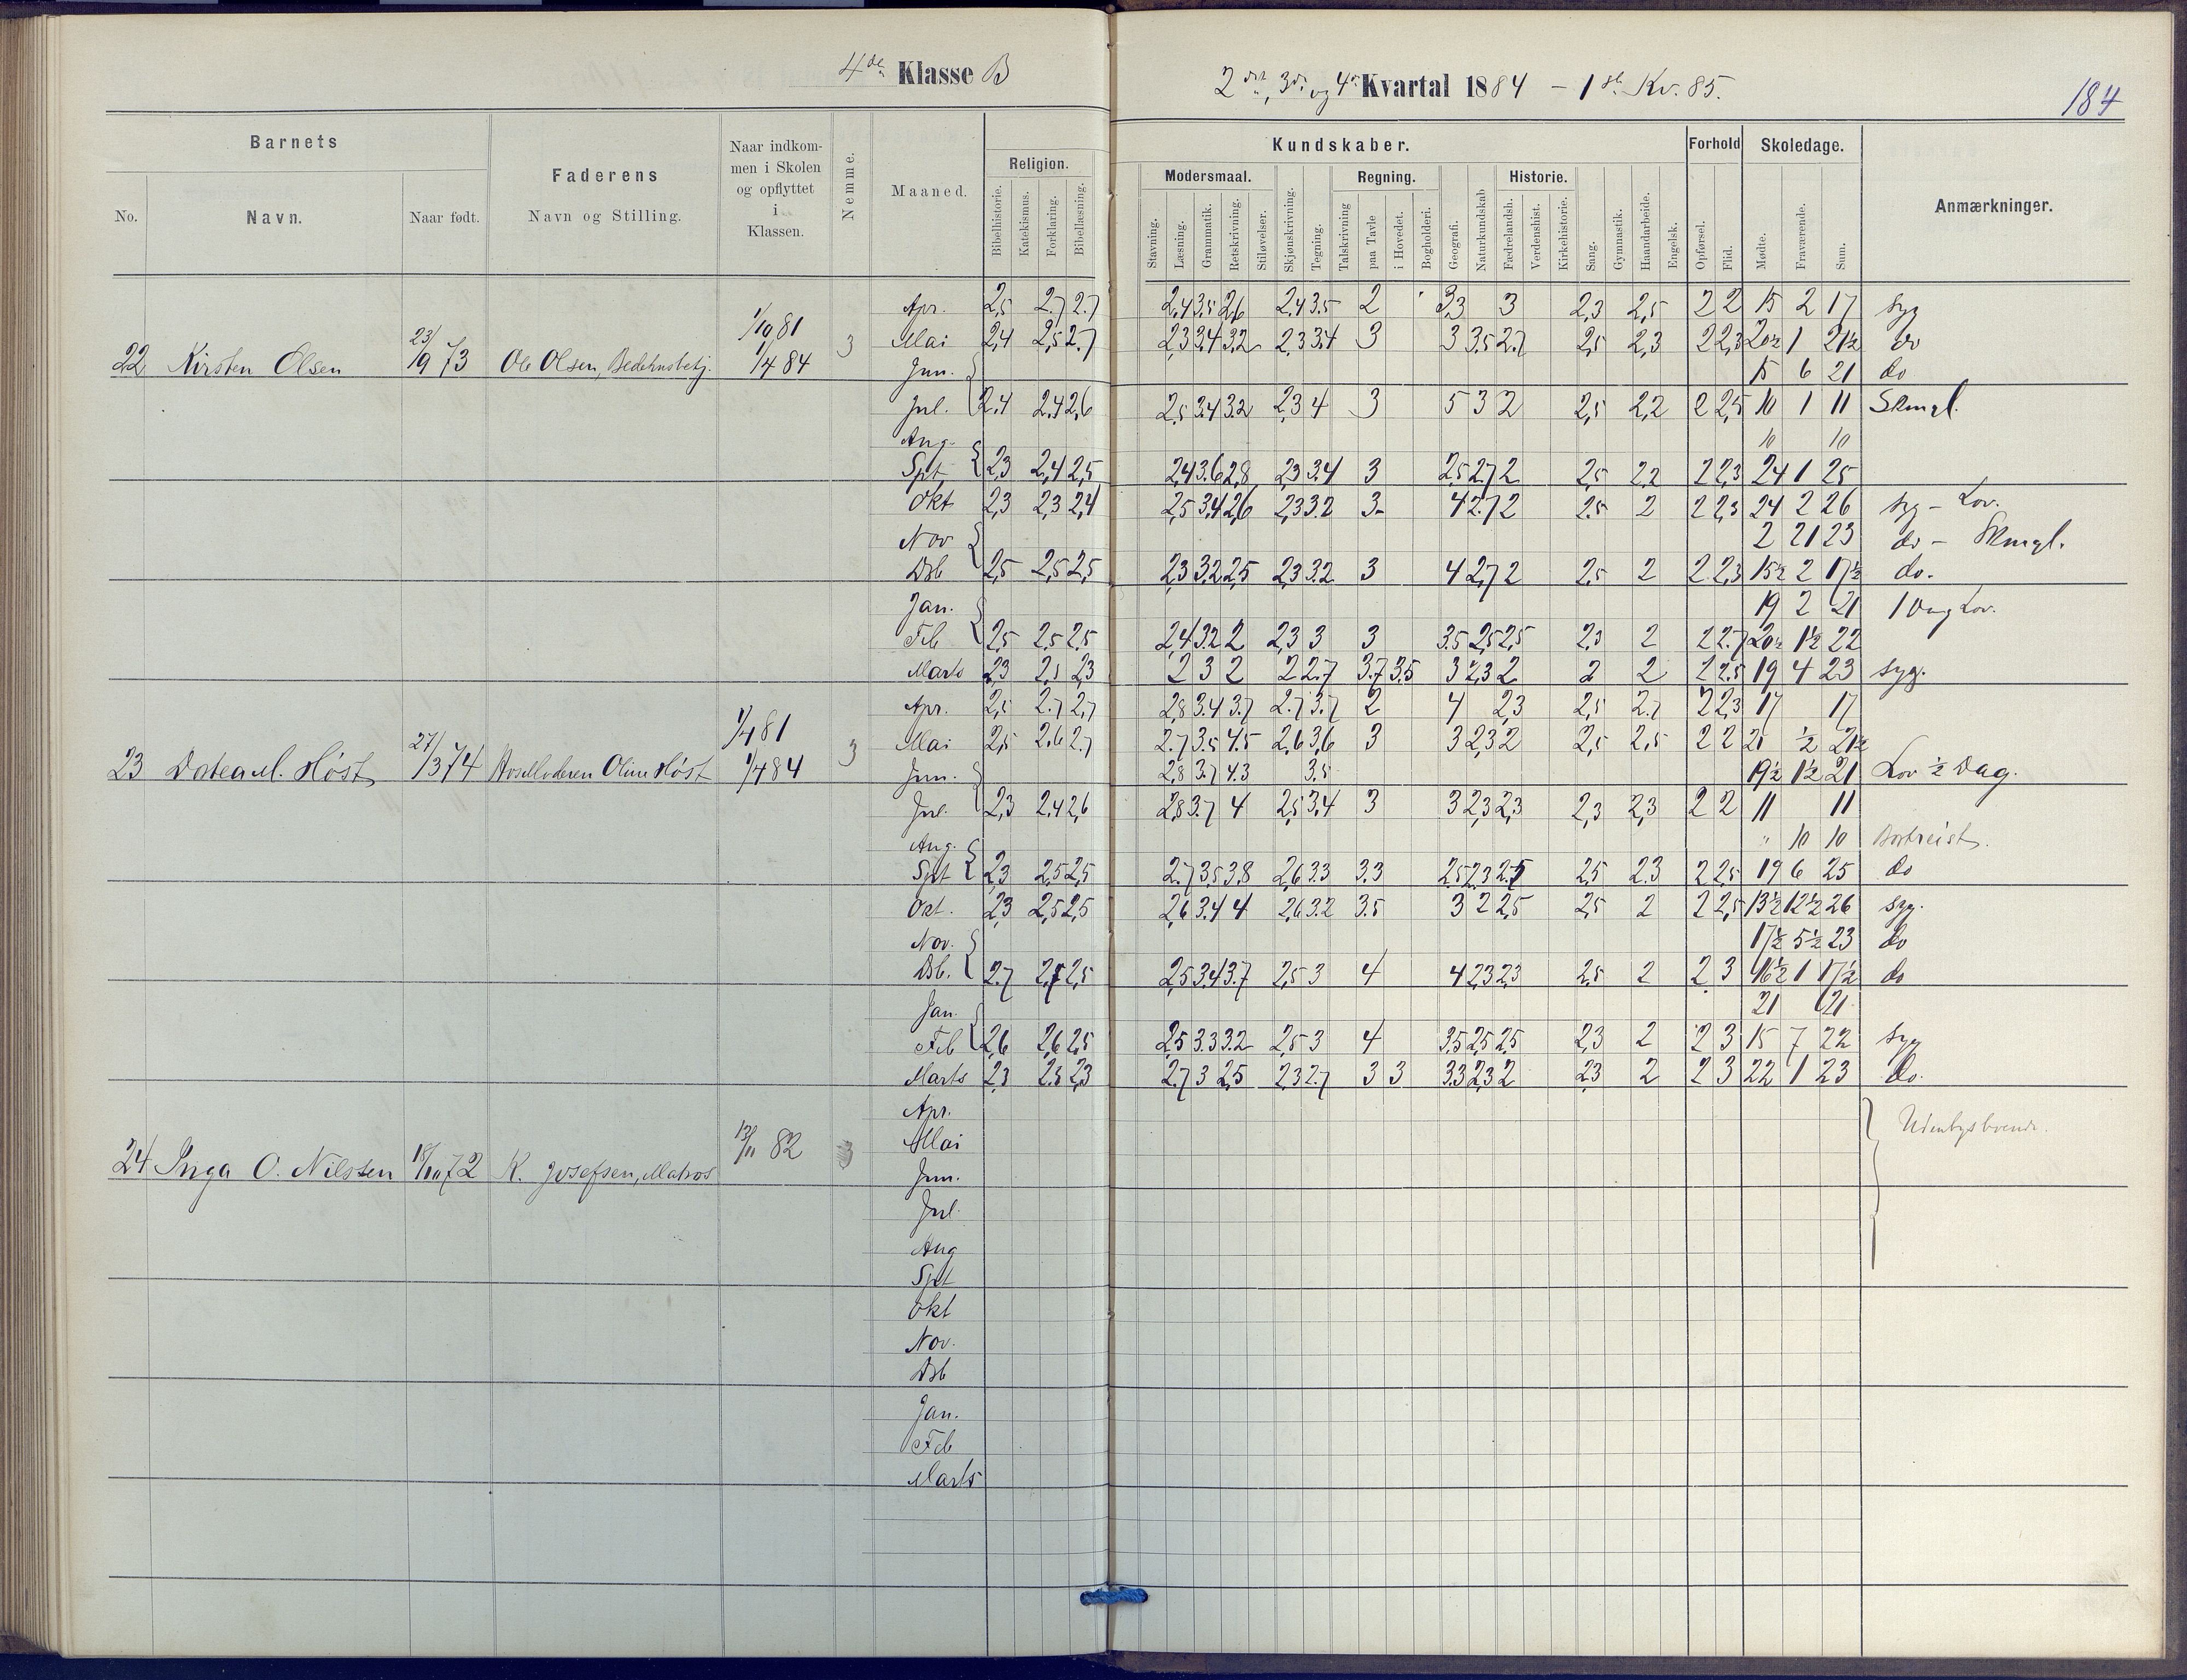 4de Klasse B
2det, 3die og 4de Kvartal 1884 – 1ste Kv. 85.
184
Barnets
No.
Navn.
Naar født.
Faderens
Navn og Stilling.
Naar indkom-
men i Skolen
og opflyttet
i
Klassen.
Nemme.
Maaned.
Religion.
Bibelhistorie.
Katekismus.
Forklaring.
Bibellæsning.
Kundskaber.
Modersmaal.
Stavning.
Læsning.
Grammatik.
Retskrivning.
Stiløvelser.
Skjønskrivning.
Tegning.
Regning.
Talskrivning
paa Tavle
i Hovedet.
Bogholderi.
Geografi.
Naturkundskab
Historie.
Fædrelandsh.
Verdenshist.
Kirkehistorie.
Sang.
Gymnastik.
Haandarbeide.
Engelsk.
Forhold
Opførsel.
Flid.
Skoledage.
Mødte.
Fraværende.
Sum.
Anmærkninger.
22 Kirsten Olsen 23/9 73 Ole Olsen, Bedehusbetj. 1/10 81 1/4 84 3
Apr. 2,5 2.7 2.7 2,4 3.5 2,6 2.4 3.5 2 3,3 3 2,3 2,5 2 2 15 2 17 syg
Mai 2,4 2,5 2.7 2,3 3,4 3,2 2,3 3,4 3 3 3.5 2.7 2,5 2,3 2 2,3 20½ 1 21½ do
Jun. 15 6 21 do
Jul. 2.4 2.4 2,6 2,5 3.4 3.2 2,3 4 3 5 3 2 2,5 2,2 2 2,5 10 1 11 Skmgl.
Aug. 10 10
Spt. 2,3 2,4 2,5 2,4 3.6 2,8 2,3 3.4 3 2,5 2.7 2 2,5 2.2 2 2,3 24 1 25
Okt 2,3 2,3 2,4 2,5 3,4 2,6 2,3 3.2 3- 4 2.7 2 2.5 2 2 2,3 24 2 26 syg – Lov.
Nov 2 21 23 do – Skmgl.
Dsb 2,5 2,5 2,5 2,3 3.2 2,5 2,3 3.2 3 4 2,7 2 2,5 2 2 2,3 15½ 2 17½ do.
Jan. 19 2 21 1 Dag Lov.
Feb 2,5 2,5 2,5 2,4 3.2 2 2,3 3 3 3.5 2,5 2,5 2,3 2 2 2.7 20½ 1½ 22
Marts 2,3 2,5 2,3 2 3 2 2 2.7 3.7 3.5 3 2,3 2 2 2 2 2.5 19 4 23 syg.
23 Dotea M. Høst 27/3 74 Hos Moderen Oline Høst 1/4 81 1/4 84 3
Apr. 2,5 2.7 2,7 2,8 3.4 3.7 2.7 3.7 2 4 2,3 2,5 2.7 2 2,3 17 17
Mai 2,5 2.6 2.7 2.7 3.5 4.5 2,6 3,6 3 3 2,3 2 2,5 2,5 2 2 21 ½ 21½
Jun. 2,8 3.7 4.3 3.5 19½ 1½ 21 Lov ½ Dag.
Jul. 2,3 2.4 2,6 2,8 3.7 4 2,5 3,4 3 3 2,3 2,3 2,3 2,3 2 2 11 11
Aug. " 10 10 Bortreist.
Spt 2,3 2,5 2,5 2.7 3,5 3,8 2,6 3.3 3.3 2,5 2,3 2.5 2,5 2.3 2 2,5 19 6 25 do
Okt. 2,3 2,5 2,5 2,6 3.4 4 2,6 3.2 3.5 3 2 2,5 2,5 2 2 2,5 13½ 12½ 26 syg.
Nov. 17½ 5½ 23 do
Dsb. 2.7 2,5 2,5 2,5 3.4 3.7 2,5 3 4 4 2,3 2,3 2,5 2 2 3 16½ 1 17½ do
Jan. 21 21
Feb 2,6 2,6 2,5 2,5 3.3 3.2 2,5 3 4 3.5 2,5 2,5 2,3 2 2 3 15 7 22 syg
Marts 2,3 2.5 2,3 2.7 3 2,5 2,3 2.7 3 3 3.3 2,3 2 2,3 2 2 3 22 1 23 do.
24 Inga O. Nilssen 18/10 72 K. Josefsen, Matros 13/11 82 3
Apr.
Mai
Udenbysboende.
Jun.
Jul.
Aug
Spt
Okt
Nov.
Dsb
Jan.
Feb
Marts